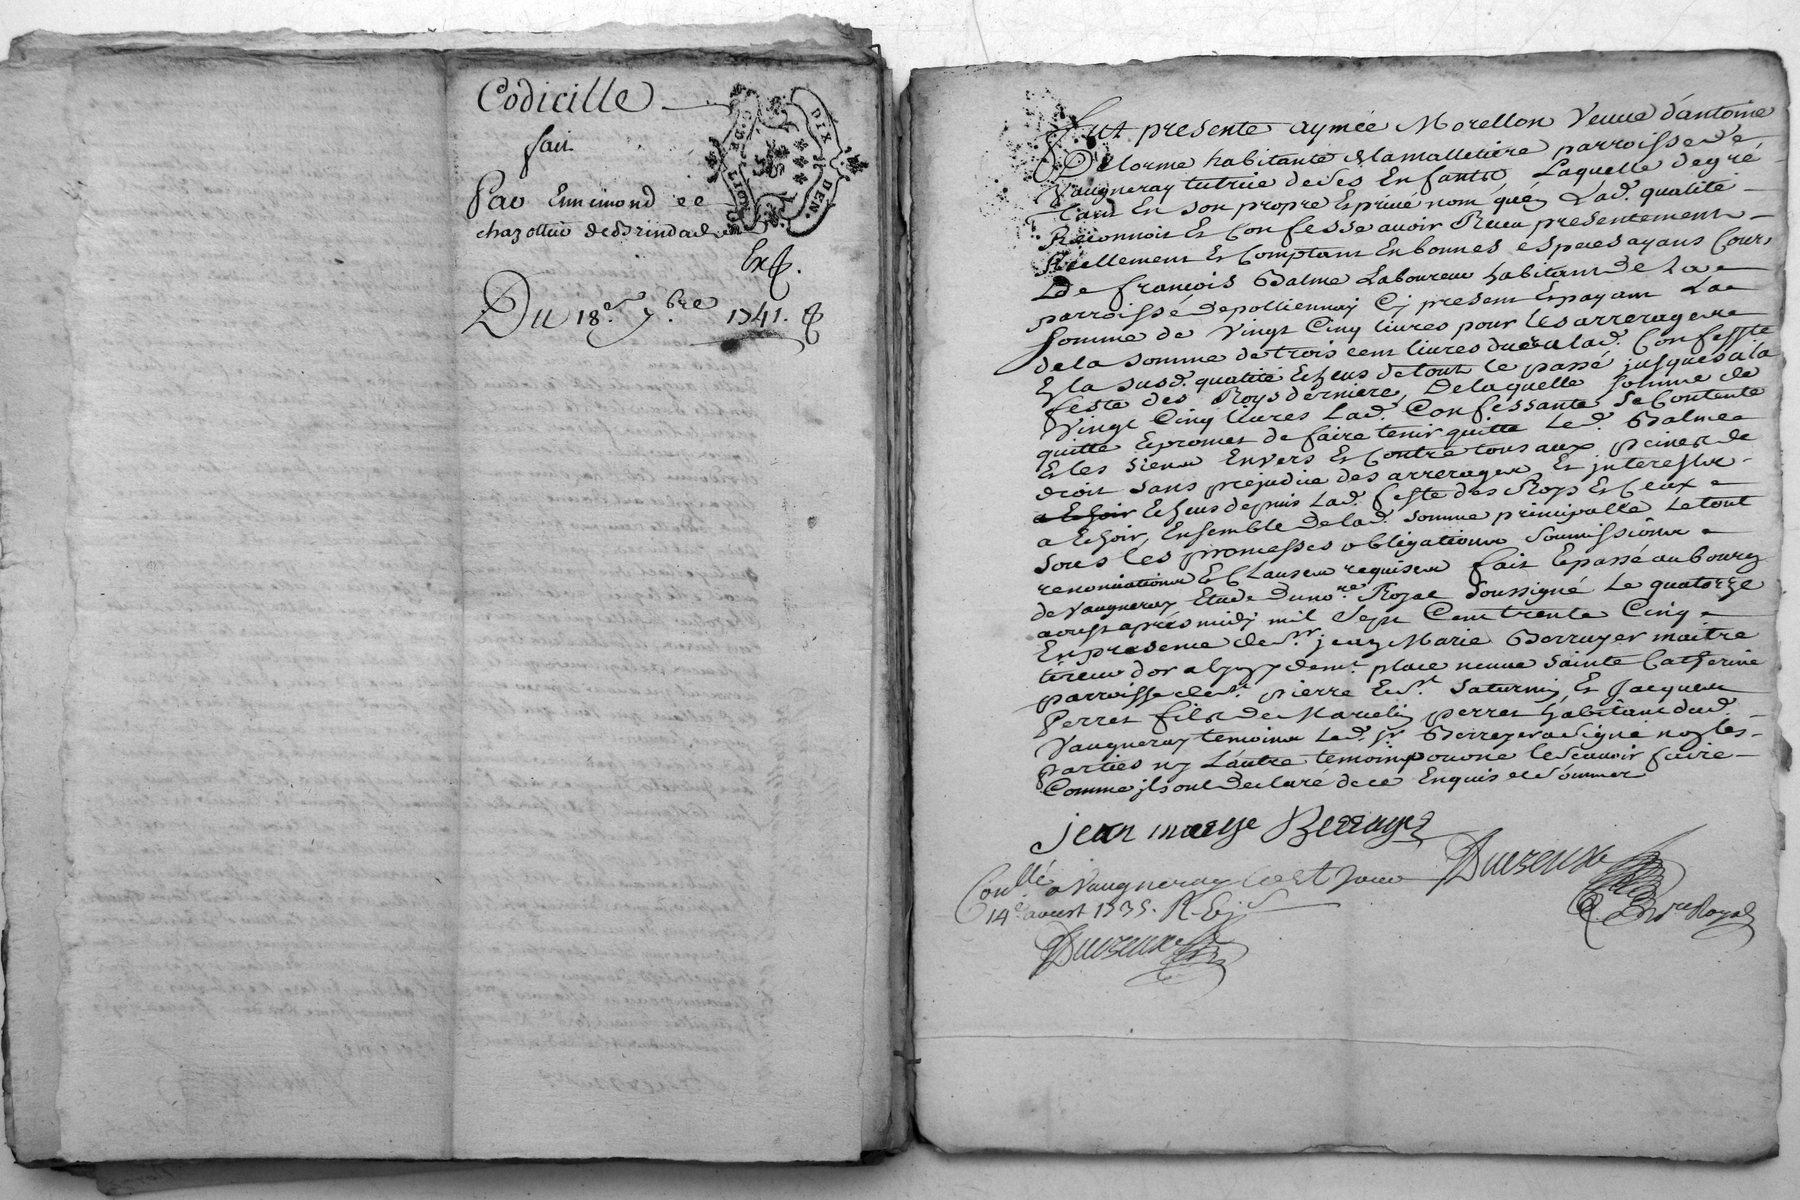 Codicille
fait
Par Ennemond
chazottier de Brindas
Exp.
Du 18e 7bre 1741.
G. DE LION
DIX DEN.
fut presente aymée Morellon Veuve d'antoine
Delorme habitante a lamalletiere parroisse de
Vaugneray tutrice de ses Enfants Laquelle de gré
tant En son propre Et privé nom qu'en Lad. qualité
Reconnoit Et Confesse avoir Receu presentement
Reellement Et Comptant En bonnes especes ayans Cours
de françois Balme Laboureur habitant de la
parroisse de pollionnay Cy present Et payant La
somme de Vingt Cinq livres pour les arrerages
de la somme de trois cent livres deue a lad. Confessante
En la susd. qualité Echeus de tout le passé jusques a la
feste des Roys derniere, De laquelle somme de
Vingt Cinq livres Lad. Confessante se Contente
quitte Et promet de faire tenir quitte Led. Balme
Et les siens Envers Et Contre tous aux peines de
droit sans prejudice des arrerages Et interests
a Echoir Echeus depuis Lad. feste des Roys Et Ceux
a Echoir, Ensemble de lad. somme principalle Le tout
sous les promesses obligations soumissions
renonciations Et Clauses requises fait Et passé au bourg
de Vaugneray Etude du nore Royal soussigné Le quatorze
aoust après midy mil sept Cent trente Cinq
En presence de sr. jean Marie Berruyer maitre
tireur d'or a Lyon demt. place neuve sainte Catherine
parroisse de st. pierre Et st. saturnin Et Jacques
Perret fils de Marcelin perret habitant dud.
Vaugneray temoins Led. sr Berruyer a signé non les
parties ny L'autre temoin pour ne le scavoir faire
Comme ils ont Declaré de ce Enquis et sommés
jean marye Berruyer
Conllé a Vaugneray Le
14e aoust 1735.
nre Royal